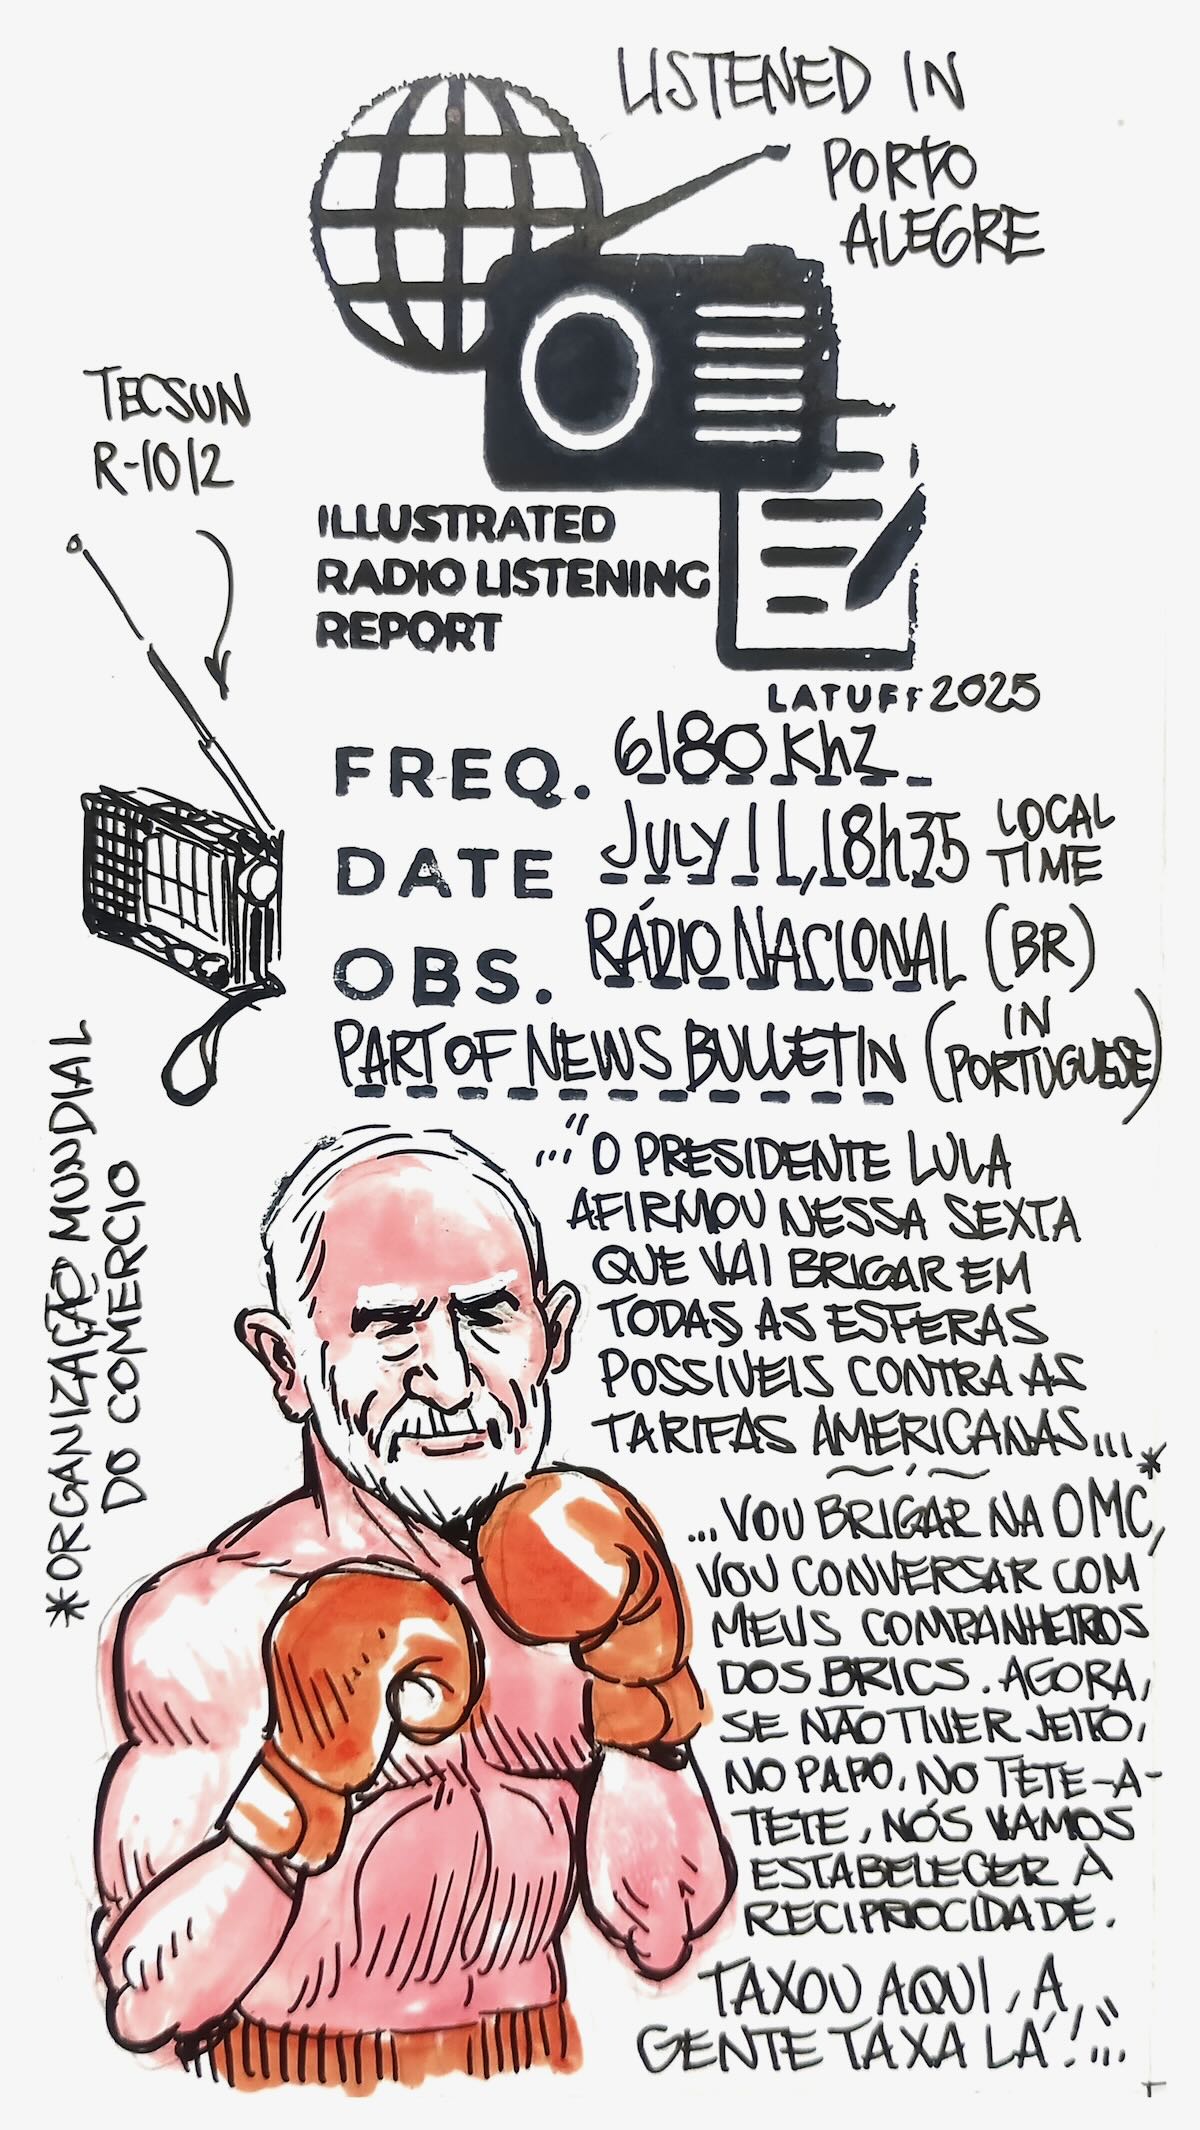 LISTENED IN
PORTO
ALEGRE
TECSUN
R-1012
ILLUSTRATED
RADIO LISTENING
REPORT
LATUFF 2025
FREQ. 6180 KHZ
DATE JULY 11, 18h35 LOCAL
TIME
OBS. RÁDIO NACIONAL (BR)
PART OF NEWS BULLETIN (IN
PORTUGUESE)
..."O PRESIDENTE LULA
AFIRMOU NESSA SEXTA
QUE VAI BRIGAR EM
TODAS AS ESFERAS
POSSIVEIS CONTRA AS
TARIFAS AMERICANAS...
...VOU BRIGAR NA OMC*,
VOU CONVERSAR COM
MEUS COMPANHEIROS
DOS BRICS. AGORA,
SE NÃO TIVER JEITO,
NO PAPO, NO TETE-A-
TETE, NÓS VAMOS
ESTABELECER A
RECIPROCIDADE.
TAXOU AQUI, A
GENTE TAXA LÁ!"...
*ORGANIZAÇÃO MUNDIAL
DO COMERCIO